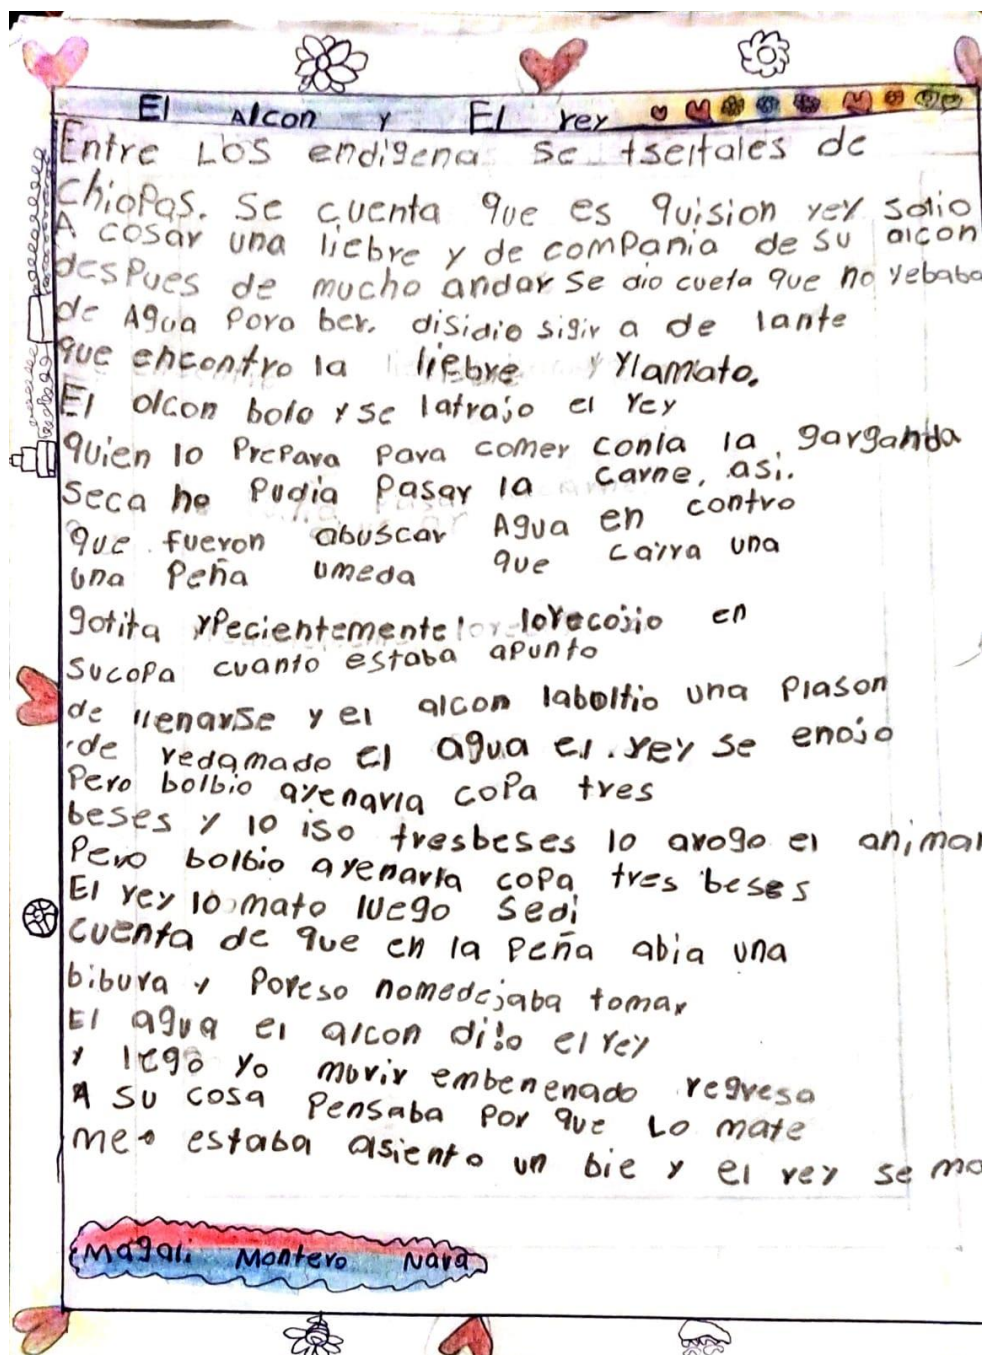 El Alcon y El rey
Entre Los endigena se tseltales de
chiapas. Se cuenta que es quision rey salio
A cosar una liebre y de compania de su alcon
despues de mucho andar se dio cueta que no yebaba
de Agua Para ber. disidio sigir a de lante
que encontro la liebre y ylamato.
El alcon bolo y se latrajo el rey
quien lo prepara para comer conla la garganda
seca no pudia pasar la carne, asi.
que fueron abuscar Agua en contro
una peña umeda que cairra una
gotita ypecientemente lorecojio en
sucopa cuanto estaba apunto
de llenarse y el alcon laboltio una plason
de redamado el agua el rey se enojo
Pero bolbio ayenarla copa tres
beses y lo iso tresbeses lo arogo el animal
Pero bolbio ayenarla copa tres beses
El rey lo mato luego sedi
cuenta de que en la peña abia una
bibura y poreso nomedejaba tomar
El agua el alcon dijo el rey
y lego yo morir embenenado regresa
A su casa pensaba por que Lo mate
me estaba asiento un bie y el rey se mo
Magali Montero Nava